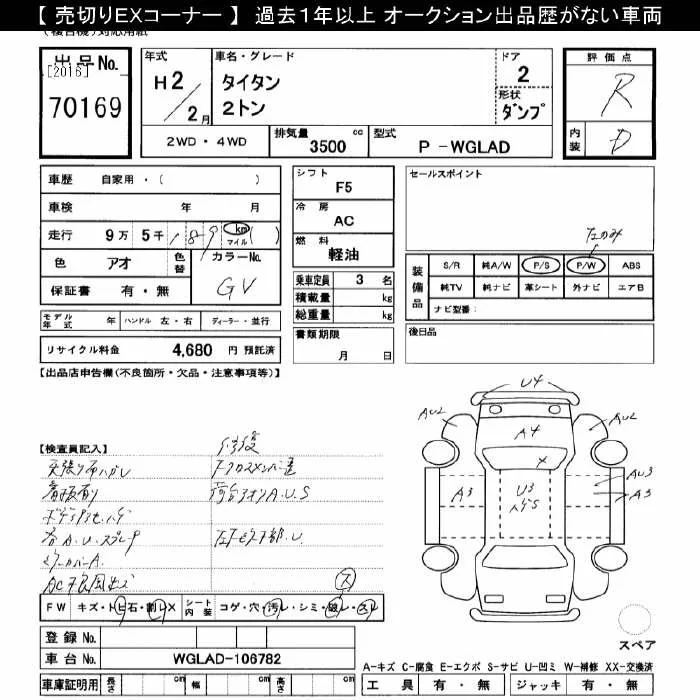 【 売切りEXコーナー 】 過去1年以上 オークション出品歴がない車両
出品No.
[2016]
70169
年式
H2/2月
車名・グレード
タイタン
2トン
ドア
2
形状
ダンプ
評価点
R
内装
D
2WD・4WD
排気量 3500 cc
型式 P -WGLAD
車歴 自家用・( )
車検 年 月
走行 9万 5千 189 km マイル ( )
色 アオ 色替 カラーNo. GV
保証書 有・無
モデル年式 年 ハンドル 左・右 ディーラー・並行
リサイクル料金 4,680 円 預託済
シフト
F5
冷房
AC
燃料
軽油
乗車定員 3 名
積載量 kg
総重量 kg
書類期限
月 日
セールスポイント
左のみ
装備品
S/R 純A/W P/S P/W ABS
純TV 純ナビ 革シート 外ナビ エアB
ナビ型番:
後日品
【出品店申告欄(不良箇所・欠品・注意事項等)】
【検査員記入】
天張り布ハガレ
看板有り
各A.U.スプレーP
荷台アオリA.U.S
左F 下部.U
U4
AU2
A4
AU2
X
A3
U3
AU3
A3
スペア
FW キズ・トビ石・割レX シート内装 コゲ・穴・汚レ・シミ・破レ・スレ
ス
登録No.
車台No. WGLAD-106782
車庫証明用 長さ cm 幅 cm 高さ cm
A-キズ C-腐食 E-エクボ S-サビ U-凹ミ W-補修 XX-交換済
工具 有・無 ジャッキ 有・無